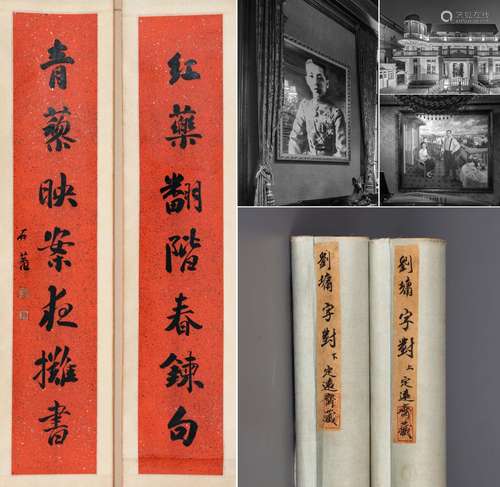 紅藥翻階春鍊句
青藜映案夜攤書
石菴
劉墉字對 上 定遠齋藏
劉墉字對 下 定遠齋藏